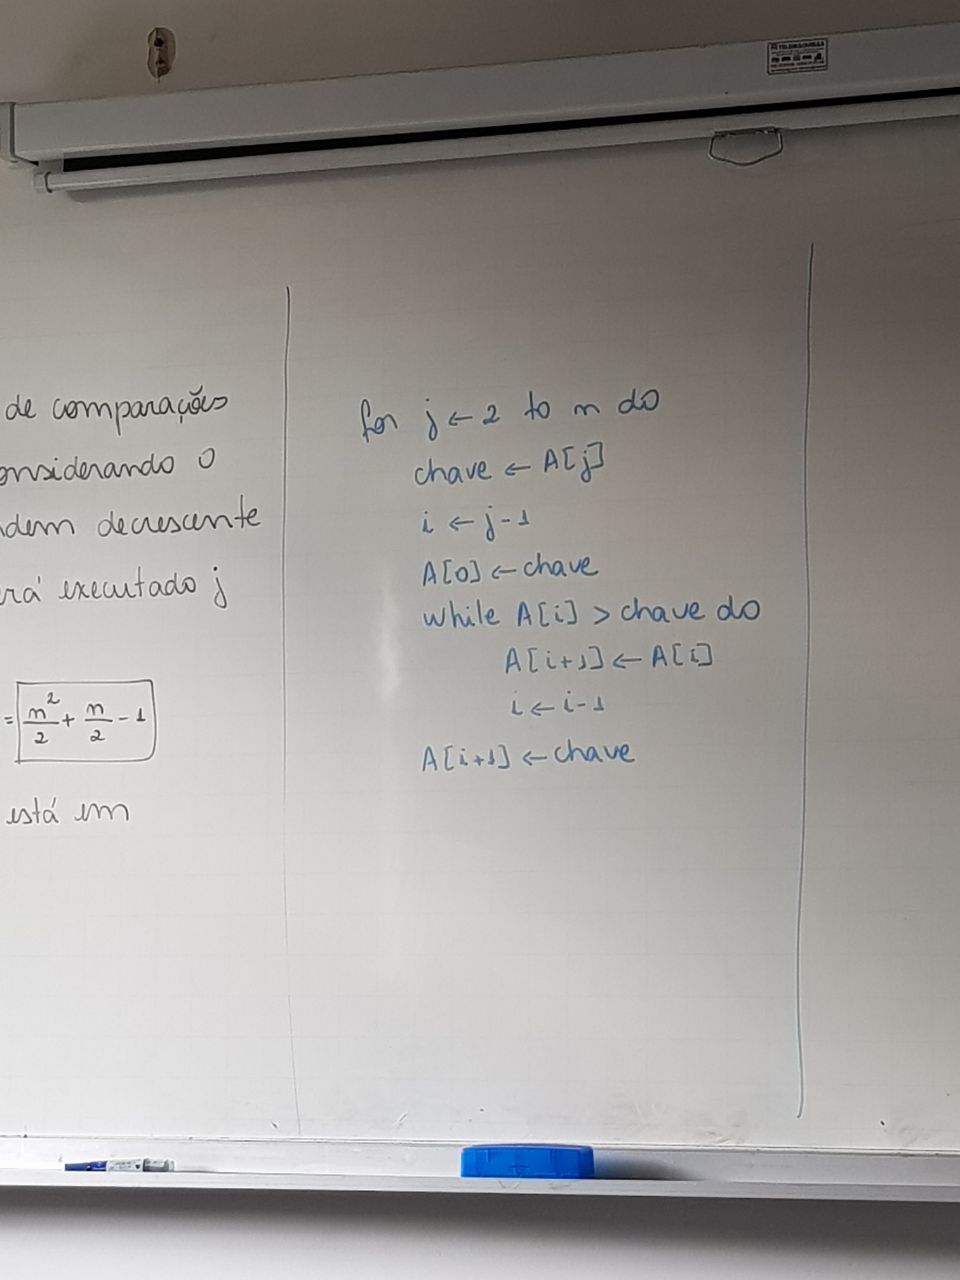 de comparações
onsiderando o
dem decrescente
rá executado j
= n²/2 + n/2 - 1
está em
for j ← 2 to n do
chave ← A[j]
i ← j-1
A[0] ← chave
while A[i] > chave do
A[i+1] ← A[i]
i ← i-1
A[i+1] ← chave